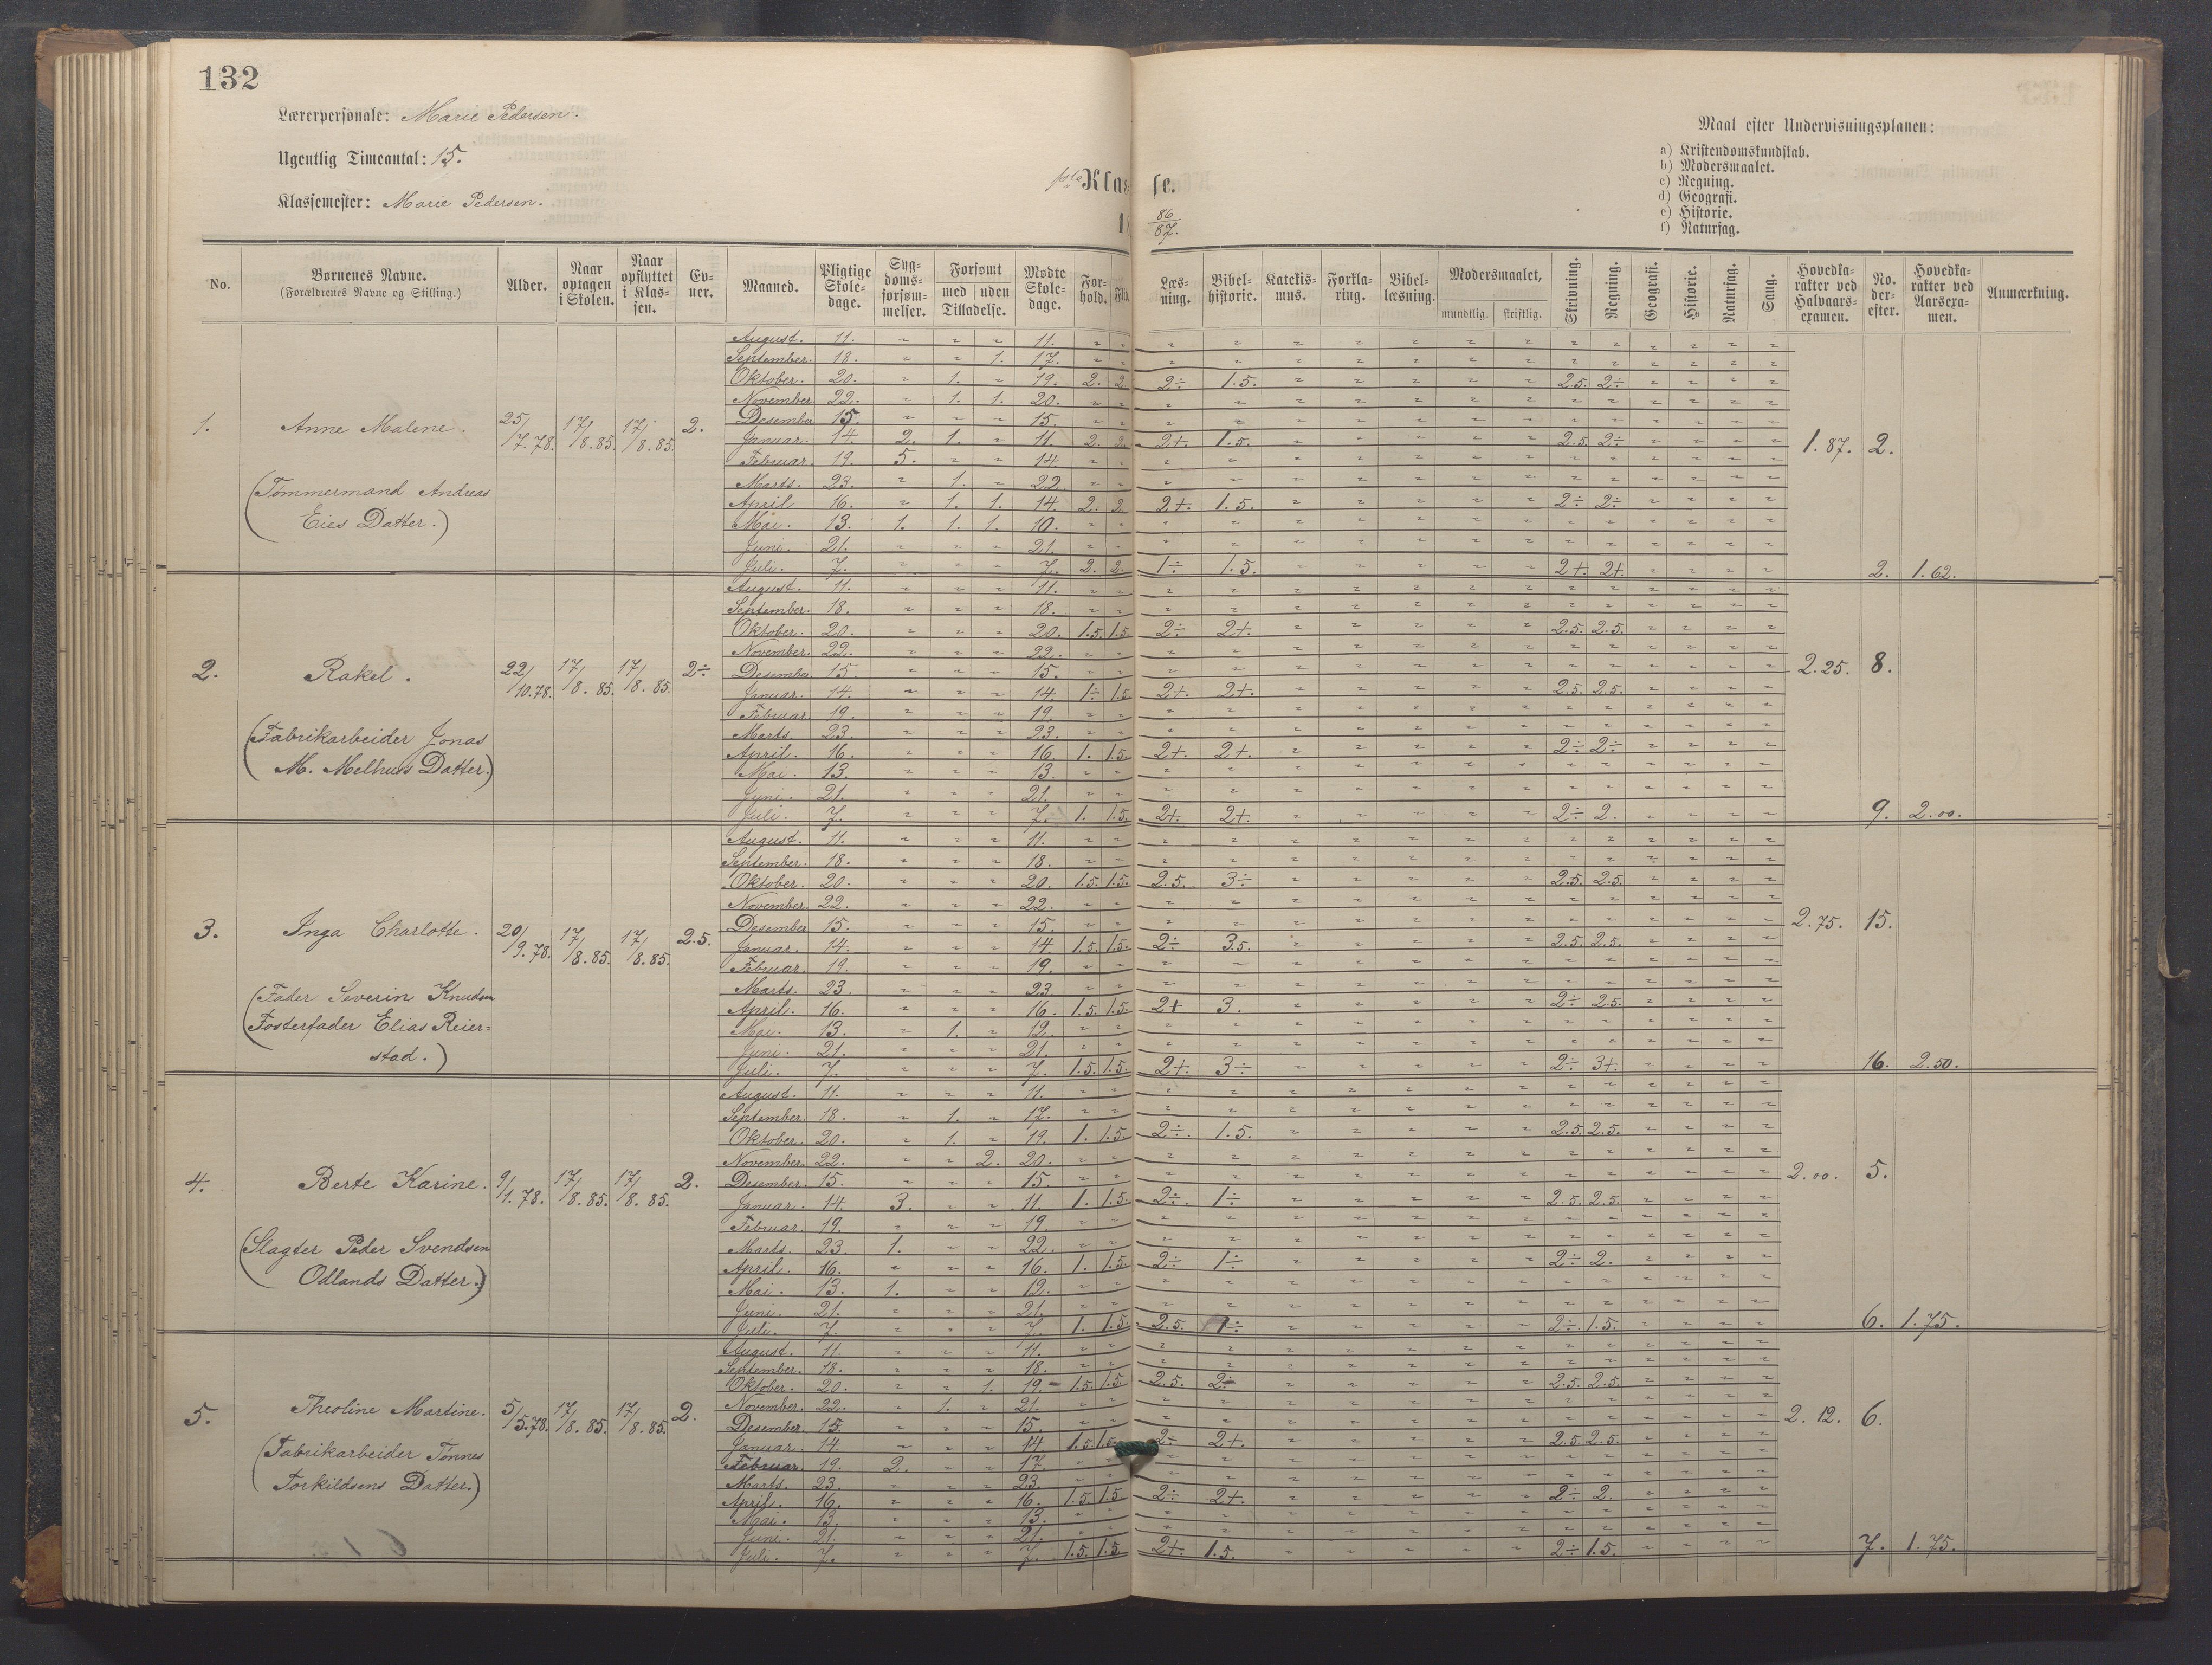 132
Lærerpersonale: Marie Pedersen.
Ugentlig Timeantal: 15.
Klassemester: Marie Pedersen.
1ste Klasse.
18 86/87.
Maal efter Undervisningsplanen:
a) Kristendomskundskab.
b) Modersmaalet.
c) Regning.
d) Geografi.
e) Historie.
f) Naturfag.
No. | Børnenes Navne. (Forældrenes Navne og Stilling.) | Alder. | Naar optagen i Skolen. | Naar opflyttet i Klassen. | Evner. | Maaned. | Pligtige Skoledage. | Sygdomsforsømmelser. | Forsømt med uden Tilladelse. | Mødte Skoledage. | Forhold. | Flid. | Læsning. | Bibelhistorie. | Katekismus. | Forklaring. | Bibellæsning. | Modersmaalet, mundtlig. skriftlig. | Skrivning. | Regning. | Geografi. | Historie. | Naturfag. | Sang. | Hovedkarakter ved Halvaarsexamen. | No. derefter. | Hovedkarakter ved Aarsexamen. | Anmærkning.
1. Anne Malene. 25/7.78. 17/8.85. 17/8.85. 2. 1.87. 2.
(Tømmermand Andreas
Eies Datter.)
August. 11. " " " 11.
September. 18. " " 1. 17.
Oktober. 20. " 1. " 19. 2. 2. 2÷ 1.5. 2.5. 2÷
November 22. " 1. 1. 20.
Desember 15. " " " 15.
Januar. 14. 2. 1. " 11. 2. 2. 2+. 1.5. 2.5. 2÷
Februar. 19. 5. " " 14.
Marts. 23. " 1. " 22.
April. 16. " 1. 1. 14. 2. 2. 2+. 1.5. 2÷ 2÷
Mai. 13. 1. 1. 1. 10.
Juni. 21. " " " 21.
Juli. 7. " " " 7. 2. 2. 1÷ 1.5. 2+. 2+. 2. 1.62.
2. Rakel. 22/10.78. 17/8.85. 17/8.85. 2÷ 2.25. 8.
(Fabrikarbeider Jonas
M. Melhus Datter.)
August. 11. " " " 11.
September. 18. " " " 18.
Oktober. 20. " " " 20. 1.5. 1.5. 2÷ 2+. 2.5. 2.5.
November. 22. " " " 22.
Desember 15. " " " 15.
Januar. 14. " " " 14. 1÷ 1.5. 2+. 2+. 2.5. 2.5.
Februar. 19. " " " 19.
Marts. 23. " " " 23.
April. 16. " " " 16. 1. 1.5. 2+. 2+. 2÷ 2÷
Mai. 13. " " " 13.
Juni. 21. " " " 21.
Juli. 7. " " " 7. 1. 1.5. 2+. 2+. 2÷ 2. 9. 2.00.
3. Inga Charlotte. 20/9.78. 17/8.85. 17/8.85. 2.5. 2.75. 15.
(Fader Severin Knudsen
Fosterfader Elias Reier=
stad.)
August. 11. " " " 11.
September. 18. " " " 18.
Oktober. 20. " " " 20. 1.5. 1.5. 2.5. 3÷ 2.5. 2.5.
November. 22. " " " 22.
Desember 15. " " " 15.
Januar. 14. " " " 14. 1.5. 1.5. 2÷ 3.5. 2.5. 2.5.
Februar. 19. " " " 19.
Marts. 23. " " " 23.
April. 16. " " " 16. 1.5. 1.5. 2+ 3. 2÷ 2.5.
Mai. 13. " 1. " 12.
Juni. 21. " " " 21.
Juli. 7. " " " 7. 1.5. 1.5. 2+. 3÷ 2÷ 3+. 16. 2.50.
4. Berte Karine. 9/1.78. 17/8.85. 17/8.85. 2. 2.00. 5.
(Slagter Peder Svendsen
Odlands Datter.)
August. 11. " " " 11.
September. 18. " 1. " 17.
Oktober. 20. " 1. " 19. 1. 1.5. 2÷. 1.5. 2.5. 2.5.
November. 22. " " 2. 20.
Desember. 15. " " " 15.
Januar. 14. 3. " " 11. 1. 1.5. 2÷. 1÷ 2.5. 2.5.
Februar. 19. " " " 19.
Marts. 23. 1. " " 22.
April. 16. " " " 16. 1. 1.5. 2÷ 1÷ 2÷ 2.
Mai. 13. 1. " " 12.
Juni. 21. " " " 21.
Juli. 7. " " " 7. 1. 1.5. 2.5. 1÷ 2÷ 1.5. 6. 1.75.
5. Theoline Martine. 5/5.78. 17/8.85. 17/8.85. 2. 2.12. 6.
(Fabrikarbeider Tønnes
Torkildsens Datter.)
August. 11. " " " 11.
September. 18. " " " 18.
Oktober. 20. " " 1. 19. 1.5. 1.5. 2.5. 2÷ 2.5. 2.5.
November. 22. " 1. " 21.
Desember 15. " " " 15.
Januar. 14. " " " 14 1.5. 1.5. 2÷ 2+. 2.5. 2.5.
Februar. 19. 2. " " 17.
Marts. 23. " " " 23.
April. 16. " " " 16. 1.5. 1.5 2÷ 2+. 2÷ 2.
Mai. 13. " " " 13.
Juni. 21. " " " 21.
Juli. 7. " " " 7. 1.5. 1.5 2+. 1.5. 2÷ 1.5. 7. 1.75.